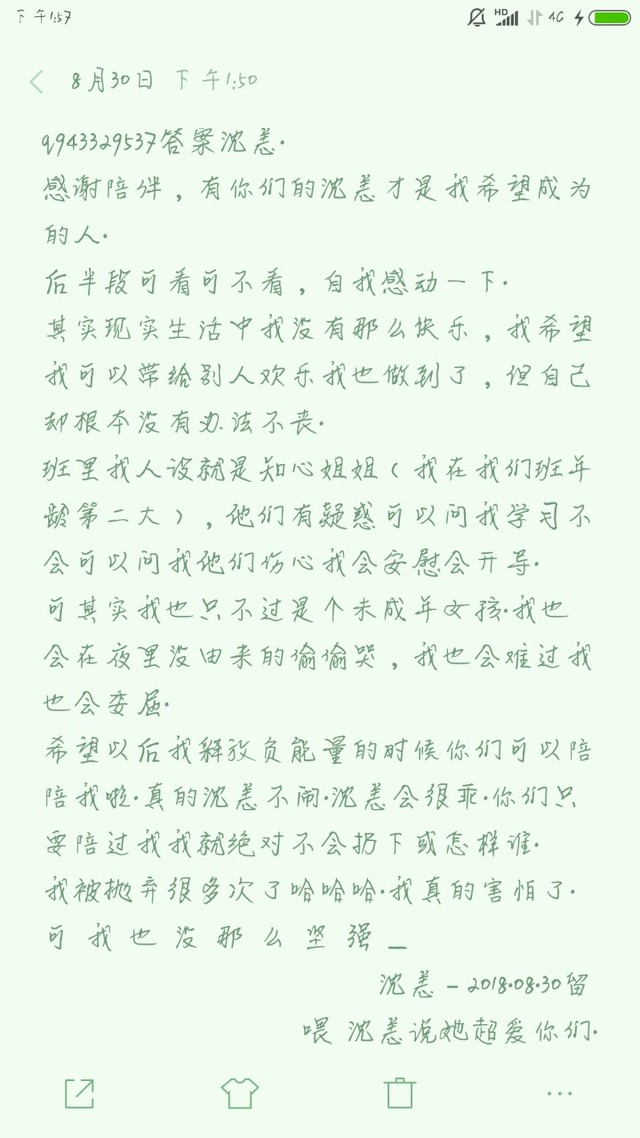 下午1:57
HD 4G
8月30日 下午1:50
q943329537答案沈恙.
感谢陪伴，有你们的沈恙才是我希望成为
的人.
后半段可看可不看，自我感动一下.
其实现实生活中我没有那么快乐，我希望
我可以带给别人欢乐我也做到了，但自己
却根本没有办法不丧.
班里我人设就是知心姐姐（我在我们班年
龄第二大），他们有疑惑可以问我学习不
会可以问我他们伤心我会安慰会开导.
可其实我也只不过是个未成年女孩.我也
会在夜里没由来的偷偷哭，我也会难过我
也会委屈.
希望以后我释放负能量的时候你们可以陪
陪我啦.真的沈恙不闹.沈恙会很乖.你们只
要陪过我我就绝对不会扔下或怎样谁.
我被抛弃很多次了哈哈哈.我真的害怕了.
可我也没那么坚强_
沈恙-2018.08.30留
喂 沈恙说她超爱你们.